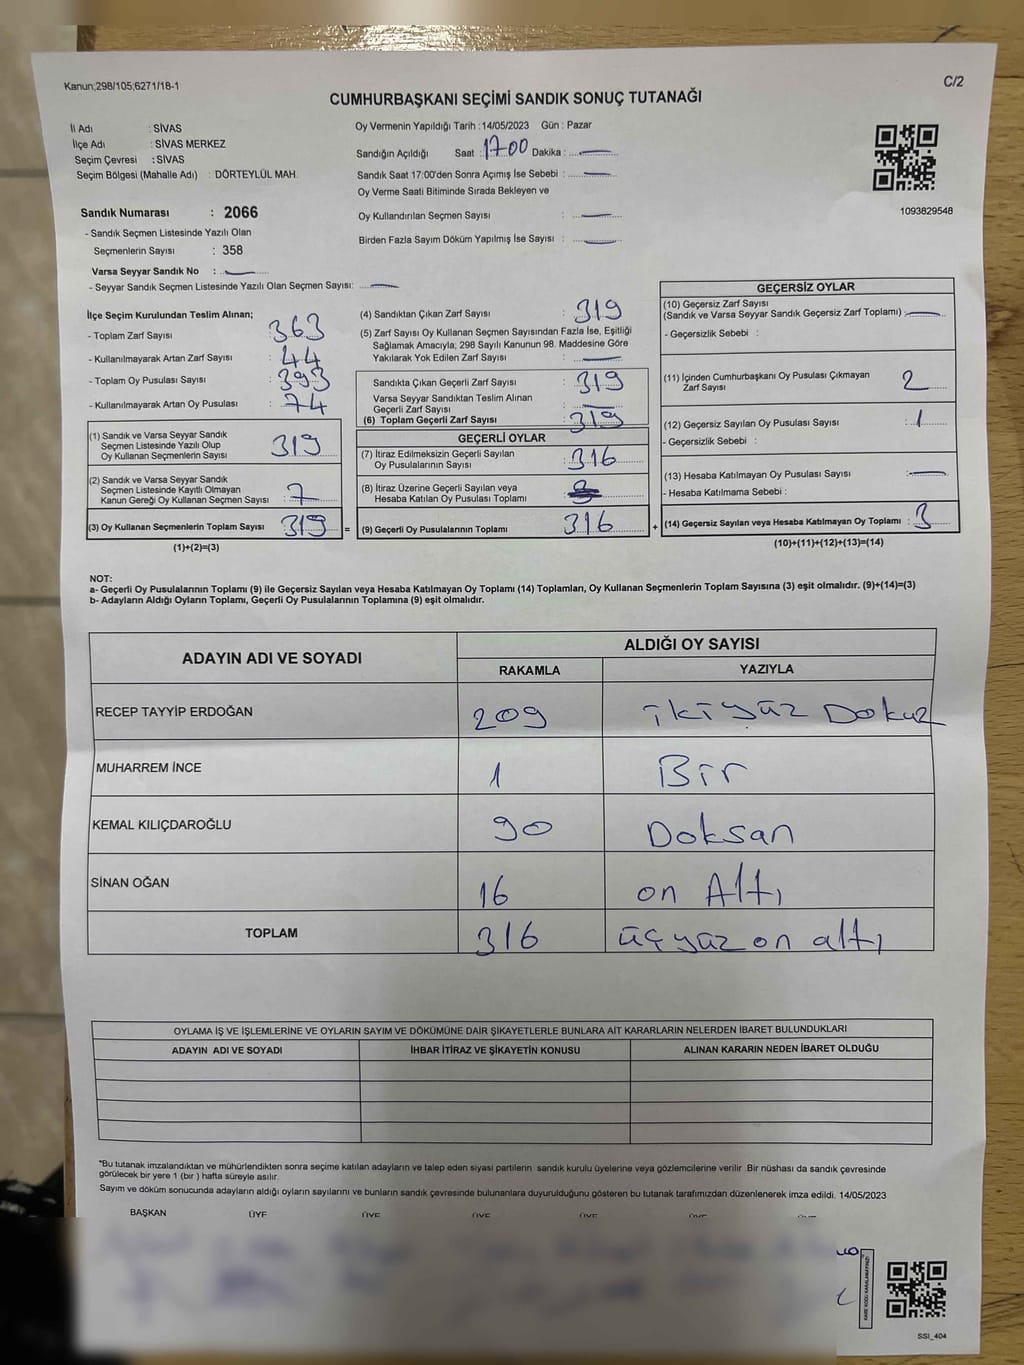 Kanun;298/105;6271/18-1
C/2
CUMHURBAŞKANI SEÇİMİ SANDIK SONUÇ TUTANAĞI
İl Adı : SİVAS
İlçe Adı : SİVAS MERKEZ
Seçim Çevresi : SİVAS
Seçim Bölgesi (Mahalle Adı) : DÖRTEYLÜL MAH.
Oy Vermenin Yapıldığı Tarih :14/05/2023 Gün : Pazar
Sandığın Açıldığı Saat : 17.00 Dakika : —
Sandık Saat 17:00'den Sonra Açımış İse Sebebi : —
Oy Verme Saati Bitiminde Sırada Bekleyen ve
Oy Kullandırılan Seçmen Sayısı : —
Birden Fazla Sayım Döküm Yapılmış İse Sayısı : —
1093829548
Sandık Numarası : 2066
- Sandık Seçmen Listesinde Yazılı Olan
Seçmenlerin Sayısı : 358
Varsa Seyyar Sandık No : —
- Seyyar Sandık Seçmen Listesinde Yazılı Olan Seçmen Sayısı: —
İlçe Seçim Kurulundan Teslim Alınan;
- Toplam Zarf Sayısı : 363
- Kullanılmayarak Artan Zarf Sayısı : 44
- Toplam Oy Pusulası Sayısı : 393
- Kullanılmayarak Artan Oy Pusulası : 74
(1) Sandık ve Varsa Seyyar Sandık
Seçmen Listesinde Yazılı Olup
Oy Kullanan Seçmenlerin Sayısı : 319
(2) Sandık ve Varsa Seyyar Sandık
Seçmen Listesinde Kayıtlı Olmayan
Kanun Gereği Oy Kullanan Seçmen Sayısı :
(3) Oy Kullanan Seçmenlerin Toplam Sayısı : 319 =
(1)+(2)=(3)
(4) Sandıktan Çıkan Zarf Sayısı : 319
(5) Zarf Sayısı Oy Kullanan Seçmen Sayısından Fazla İse, Eşitliği
Sağlamak Amacıyla; 298 Sayılı Kanunun 98. Maddesine Göre
Yakılarak Yok Edilen Zarf Sayısı : —
Sandıkta Çıkan Geçerli Zarf Sayısı : 319
Varsa Seyyar Sandıktan Teslim Alınan
Geçerli Zarf Sayısı : —
(6) Toplam Geçerli Zarf Sayısı : 319
GEÇERLİ OYLAR
(7) İtiraz Edilmeksizin Geçerli Sayılan
Oy Pusulalarının Sayısı : 316
(8) İtiraz Üzerine Geçerli Sayılan veya
Hesaba Katılan Oy Pusulası Toplamı :
(9) Geçerli Oy Pusulalarının Toplamı : 316 +
GEÇERSİZ OYLAR
(10) Geçersiz Zarf Sayısı
(Sandık ve Varsa Seyyar Sandık Geçersiz Zarf Toplamı) : —
- Geçersizlik Sebebi :
(11) İçinden Cumhurbaşkanı Oy Pusulası Çıkmayan
Zarf Sayısı : 2
(12) Geçersiz Sayılan Oy Pusulası Sayısı : 1
- Geçersizlik Sebebi :
(13) Hesaba Katılmayan Oy Pusulası Sayısı : —
- Hesaba Katılmama Sebebi :
(14) Geçersiz Sayılan veya Hesaba Katılmayan Oy Toplamı : 3
(10)+(11)+(12)+(13)=(14)
NOT:
a- Geçerli Oy Pusulalarının Toplamı (9) ile Geçersiz Sayılan veya Hesaba Katılmayan Oy Toplamı (14) Toplamları, Oy Kullanan Seçmenlerin Toplam Sayısına (3) eşit olmalıdır. (9)+(14)=(3)
b- Adayların Aldığı Oyların Toplamı, Geçerli Oy Pusulalarının Toplamına (9) eşit olmalıdır.
ADAYIN ADI VE SOYADI ALDIĞI OY SAYISI
RAKAMLA YAZIYLA
RECEP TAYYİP ERDOĞAN 209 ikiyüz Dokuz
MUHARREM İNCE 1 Bir
KEMAL KILIÇDAROĞLU 90 Doksan
SİNAN OĞAN 16 on Altı
TOPLAM 316 üçyüz on altı
OYLAMA İŞ VE İŞLEMLERİNE VE OYLARIN SAYIM VE DÖKÜMÜNE DAİR ŞİKAYETLERLE BUNLARA AİT KARARLARIN NELERDEN İBARET BULUNDUKLARI
ADAYIN ADI VE SOYADI İHBAR İTİRAZ VE ŞİKAYETİN KONUSU ALINAN KARARIN NEDEN İBARET OLDUĞU
*Bu tutanak imzalandıktan ve mühürlendikten sonra seçime katılan adayların ve talep eden siyasi partilerin sandık kurulu üyelerine veya gözlemcilerine verilir .Bir nüshası da sandık çevresinde
görülecek bir yere 1 (bir ) hafta süreyle asılır.
Sayım ve döküm sonucunda adayların aldığı oyların sayılarını ve bunların sandık çevresinde bulunanlara duyurulduğunu gösteren bu tutanak tarafımızdan düzenlenerek imza edildi. 14/05/2023
BAŞKAN ÜYE ÜYE ÜYE ÜYE ÜYE
KARE KODU KARALAMAYINIZ!
SSI_404